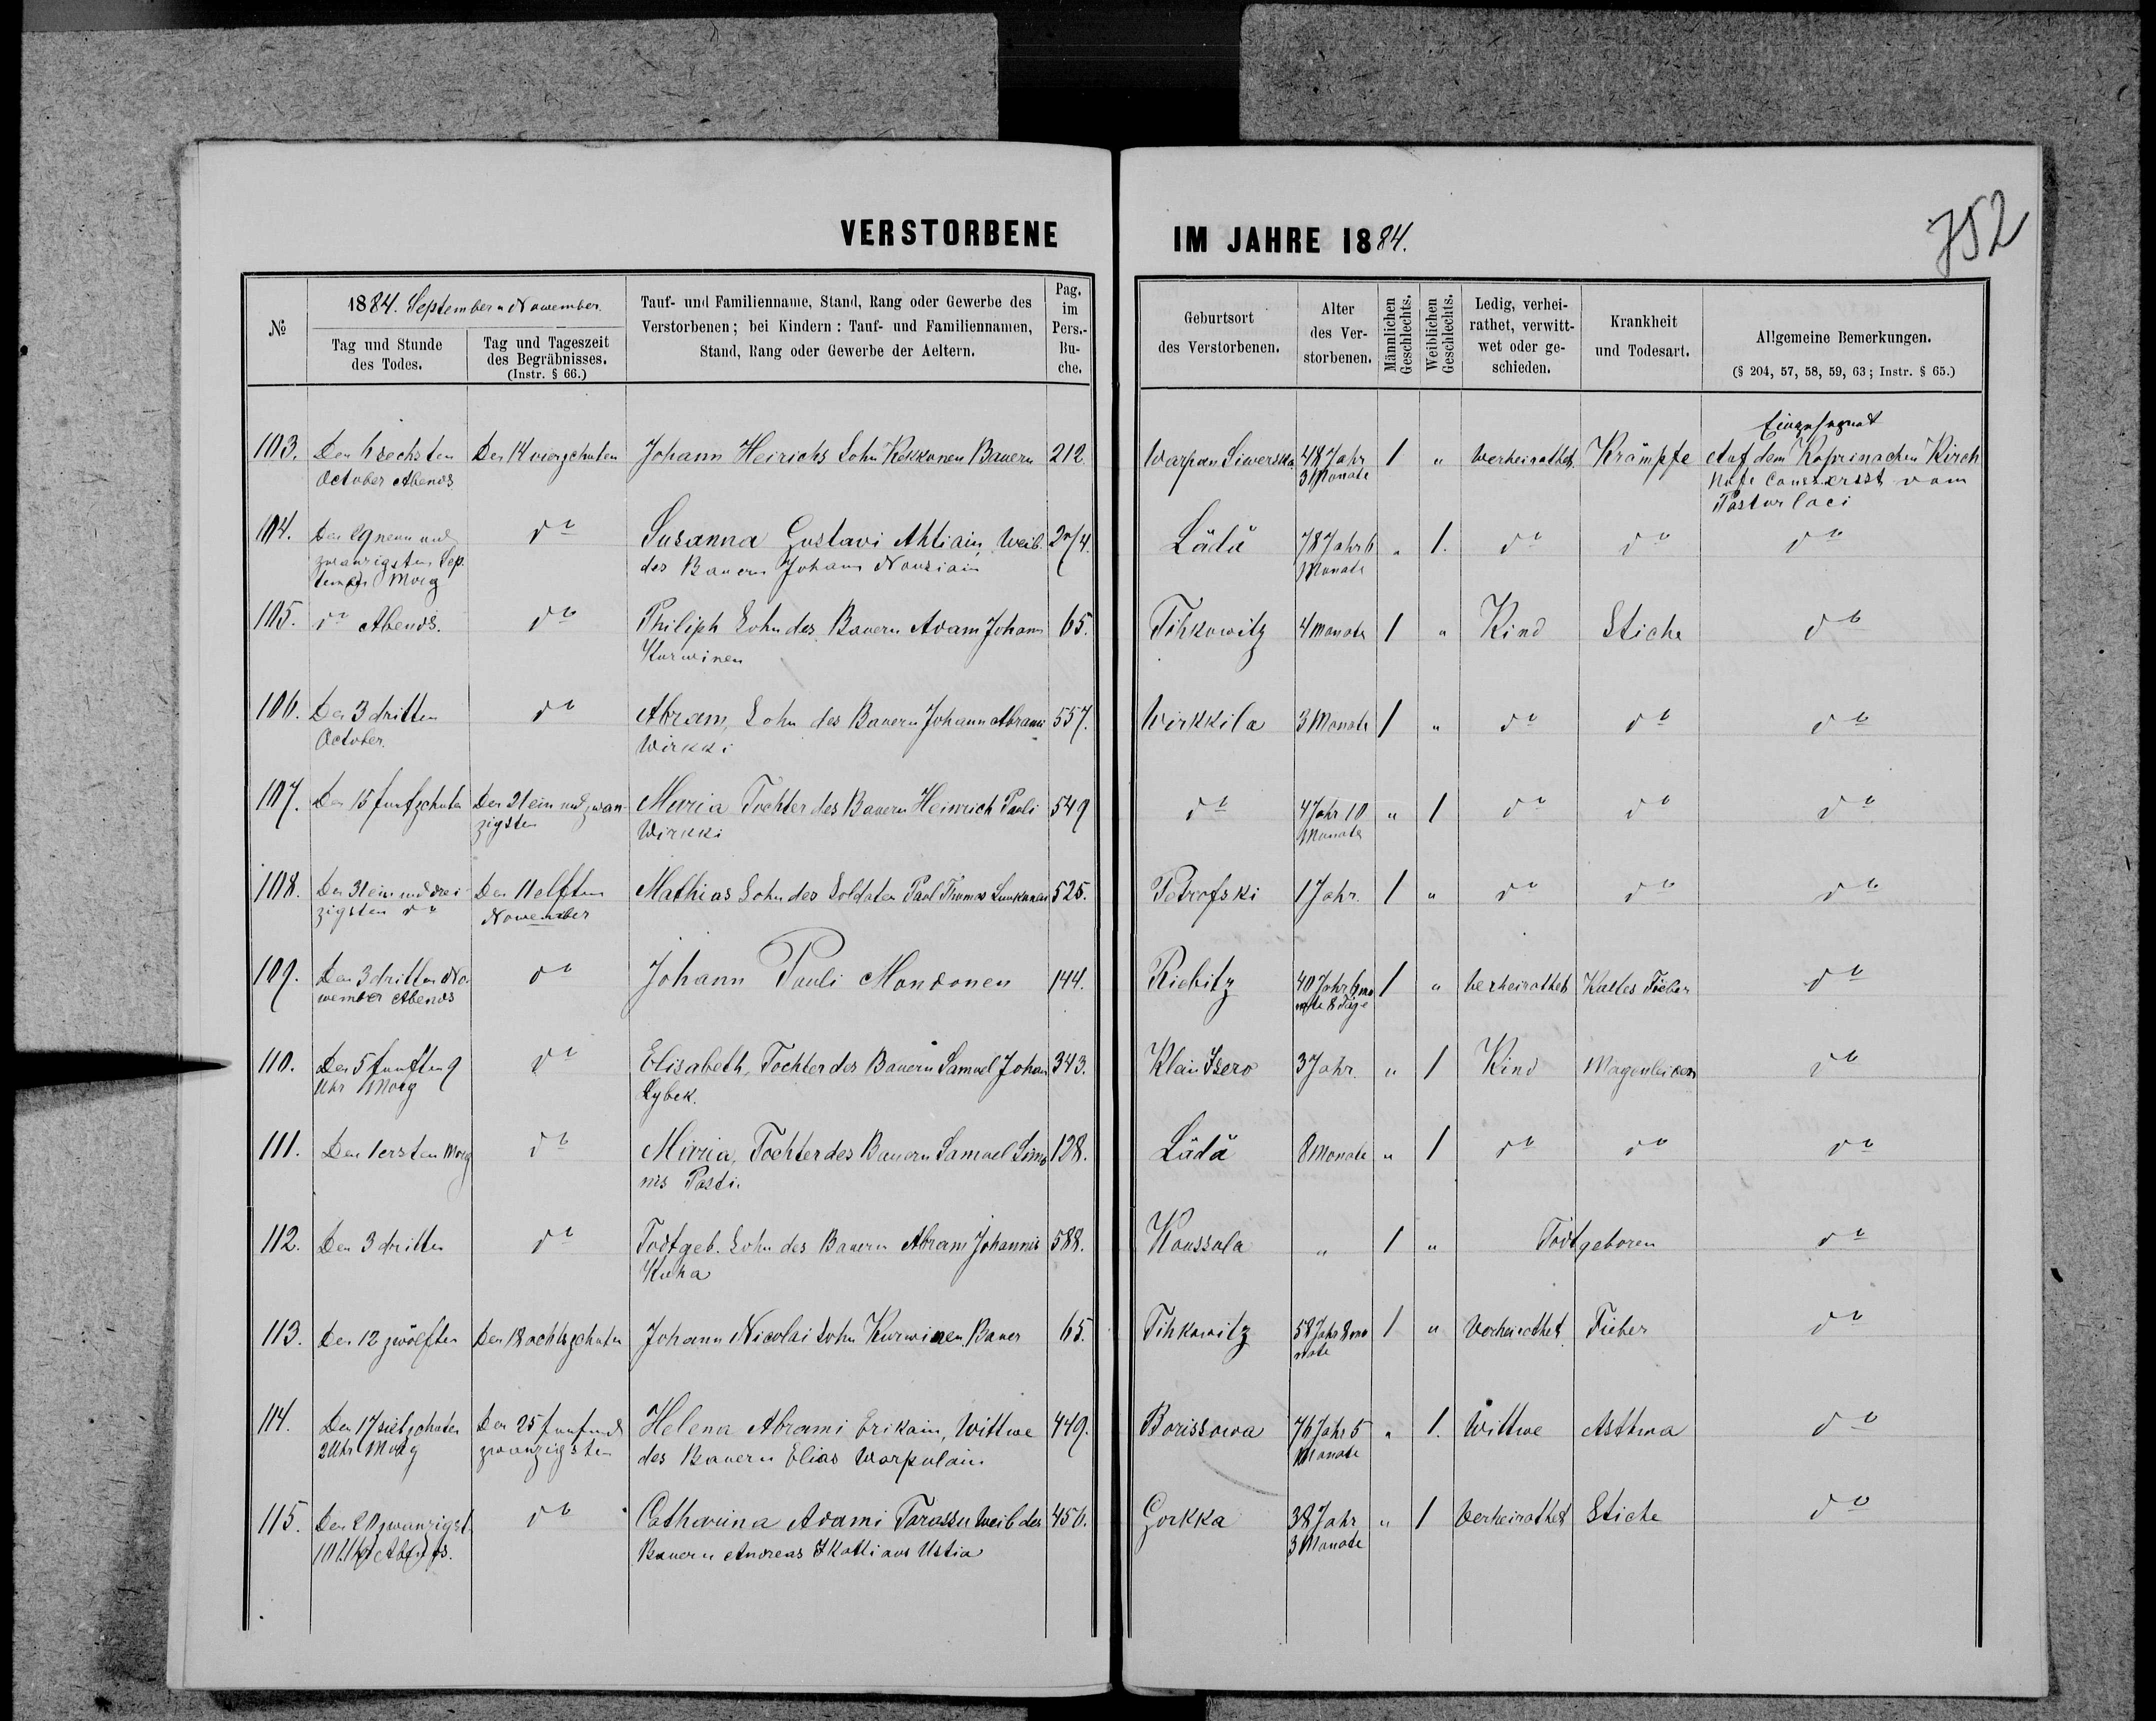 VERSTORBENE
IM JAHRE 1884.
752
№
1884. September u November.
Tag und Stunde
des Todes.
Tag und Tageszeit
des Begräbnisses.
(Instr. § 66.)
Tauf- und Familienname, Stand, Rang oder Gewerbe des
Verstorbenen; bei Kindern: Tauf- und Familiennamen,
Stand, Rang oder Gewerbe der Aeltern.
Pag.
im
Pers.-
Bu-
che.
Geburtsort
des Verstorbenen.
Alter
des Ver-
storbenen.
Männlichen
Geschlechts.
Weiblichen
Geschlechts.
Ledig, verhei-
rathet, verwitt-
wet oder ge-
schieden.
Krankheit
und Todesart.
Allgemeine Bemerkungen.
(§ 204, 57, 58, 59, 63; Instr. § 65.)
Eingesegnet
103. Den 6 sechsten Den 14 vierzehnten Johann Heirichs Sohn Kekkonen Bauern 212. Warpan Siwerska 48 Jahr 1 " Verheirathet Krämpfe Auf dem Koprinachen Kirch
October Abends 3 Monate vom
Pastor loci
104. Den 29 neun und do Susanna Gustavi Ahtiain, Weib 274. Lädä 78 Jahr 6 " 1. do do do
zwanzigsten Sep. des Bauern Johann Nousiain Monate
tember Morg
105. do Abends. do Philiph Sohn des Bauern Adam Johann 65. Tihkowitz 4 Monate 1 " Kind Stiche do
Kurwinen
106. Den 3 dritten do Abram, Sohn des Bauern Johann Abrami 557. Wirkkila 3 Monate 1 " do do do
October. Wirkki
107. Den 15 funfzehnten Den 21 ein und zwan- Maria Tochter des Bauern Heinrich Pauli 549 do 4 Jahr 10 " 1 do do do
zigsten Wirkki Monate
108. Den 31 ein und drei- Den 11 elften Mathias Sohn des Soldaten Paul Thomas Luukanen 525. Petrofski 1 Jahr. 1 " do do do
zigsten do November
109. Den 3 dritten No- do Johann Pauli Mondonen 144. Riebitz 40 Jahr 6 mo 1 " Verheirathet Kaltes Fieber do
wember Abends nate 8 Tage
110. Den 5 funften 9 do Elisabeth, Tochter des Bauern Samuel Johan 343. Klein Isero 3 Jahr. " 1 Kind Magenleiden do
Uhr Morg Lybek.
111. Den 1 ersten Morg do Maria, Tochter des Bauern Samuel Simo 128. Lädä 8 Monate " 1 do do do
nis Pasti.
112. Den 3 dritten do Todtgeb. Sohn des Bauern Abram Johannis 588. Koussula " 1 " Todtgeboren do
Kuha
113. Den 12 zwölften Den 18 achtzehnten Johann Nicolai Sohn Kurwinen, Bauer 65. Tihkowitz 58 Jahr 8 mo 1 " Verheirathet Fieber do
nate
114. Den 17 siebzehnten Den 25 funfund Helena Abrami Erikain, Wittwe 449. Borissowa 76 Jahr 5 " 1. Wittwe Asthma do
2 Uhr Morg zwanzigsten des Bauern Elias Warpulain Monate
115. Den 20 zwanzigst. do Catharina Adami Tarassu Weib des 456. Gorkka 38 Jahr " 1 Verheirathet Stiche do
10 Uhr Abends. Bauern Andreas Ikolli aus Ustia 3 Monate